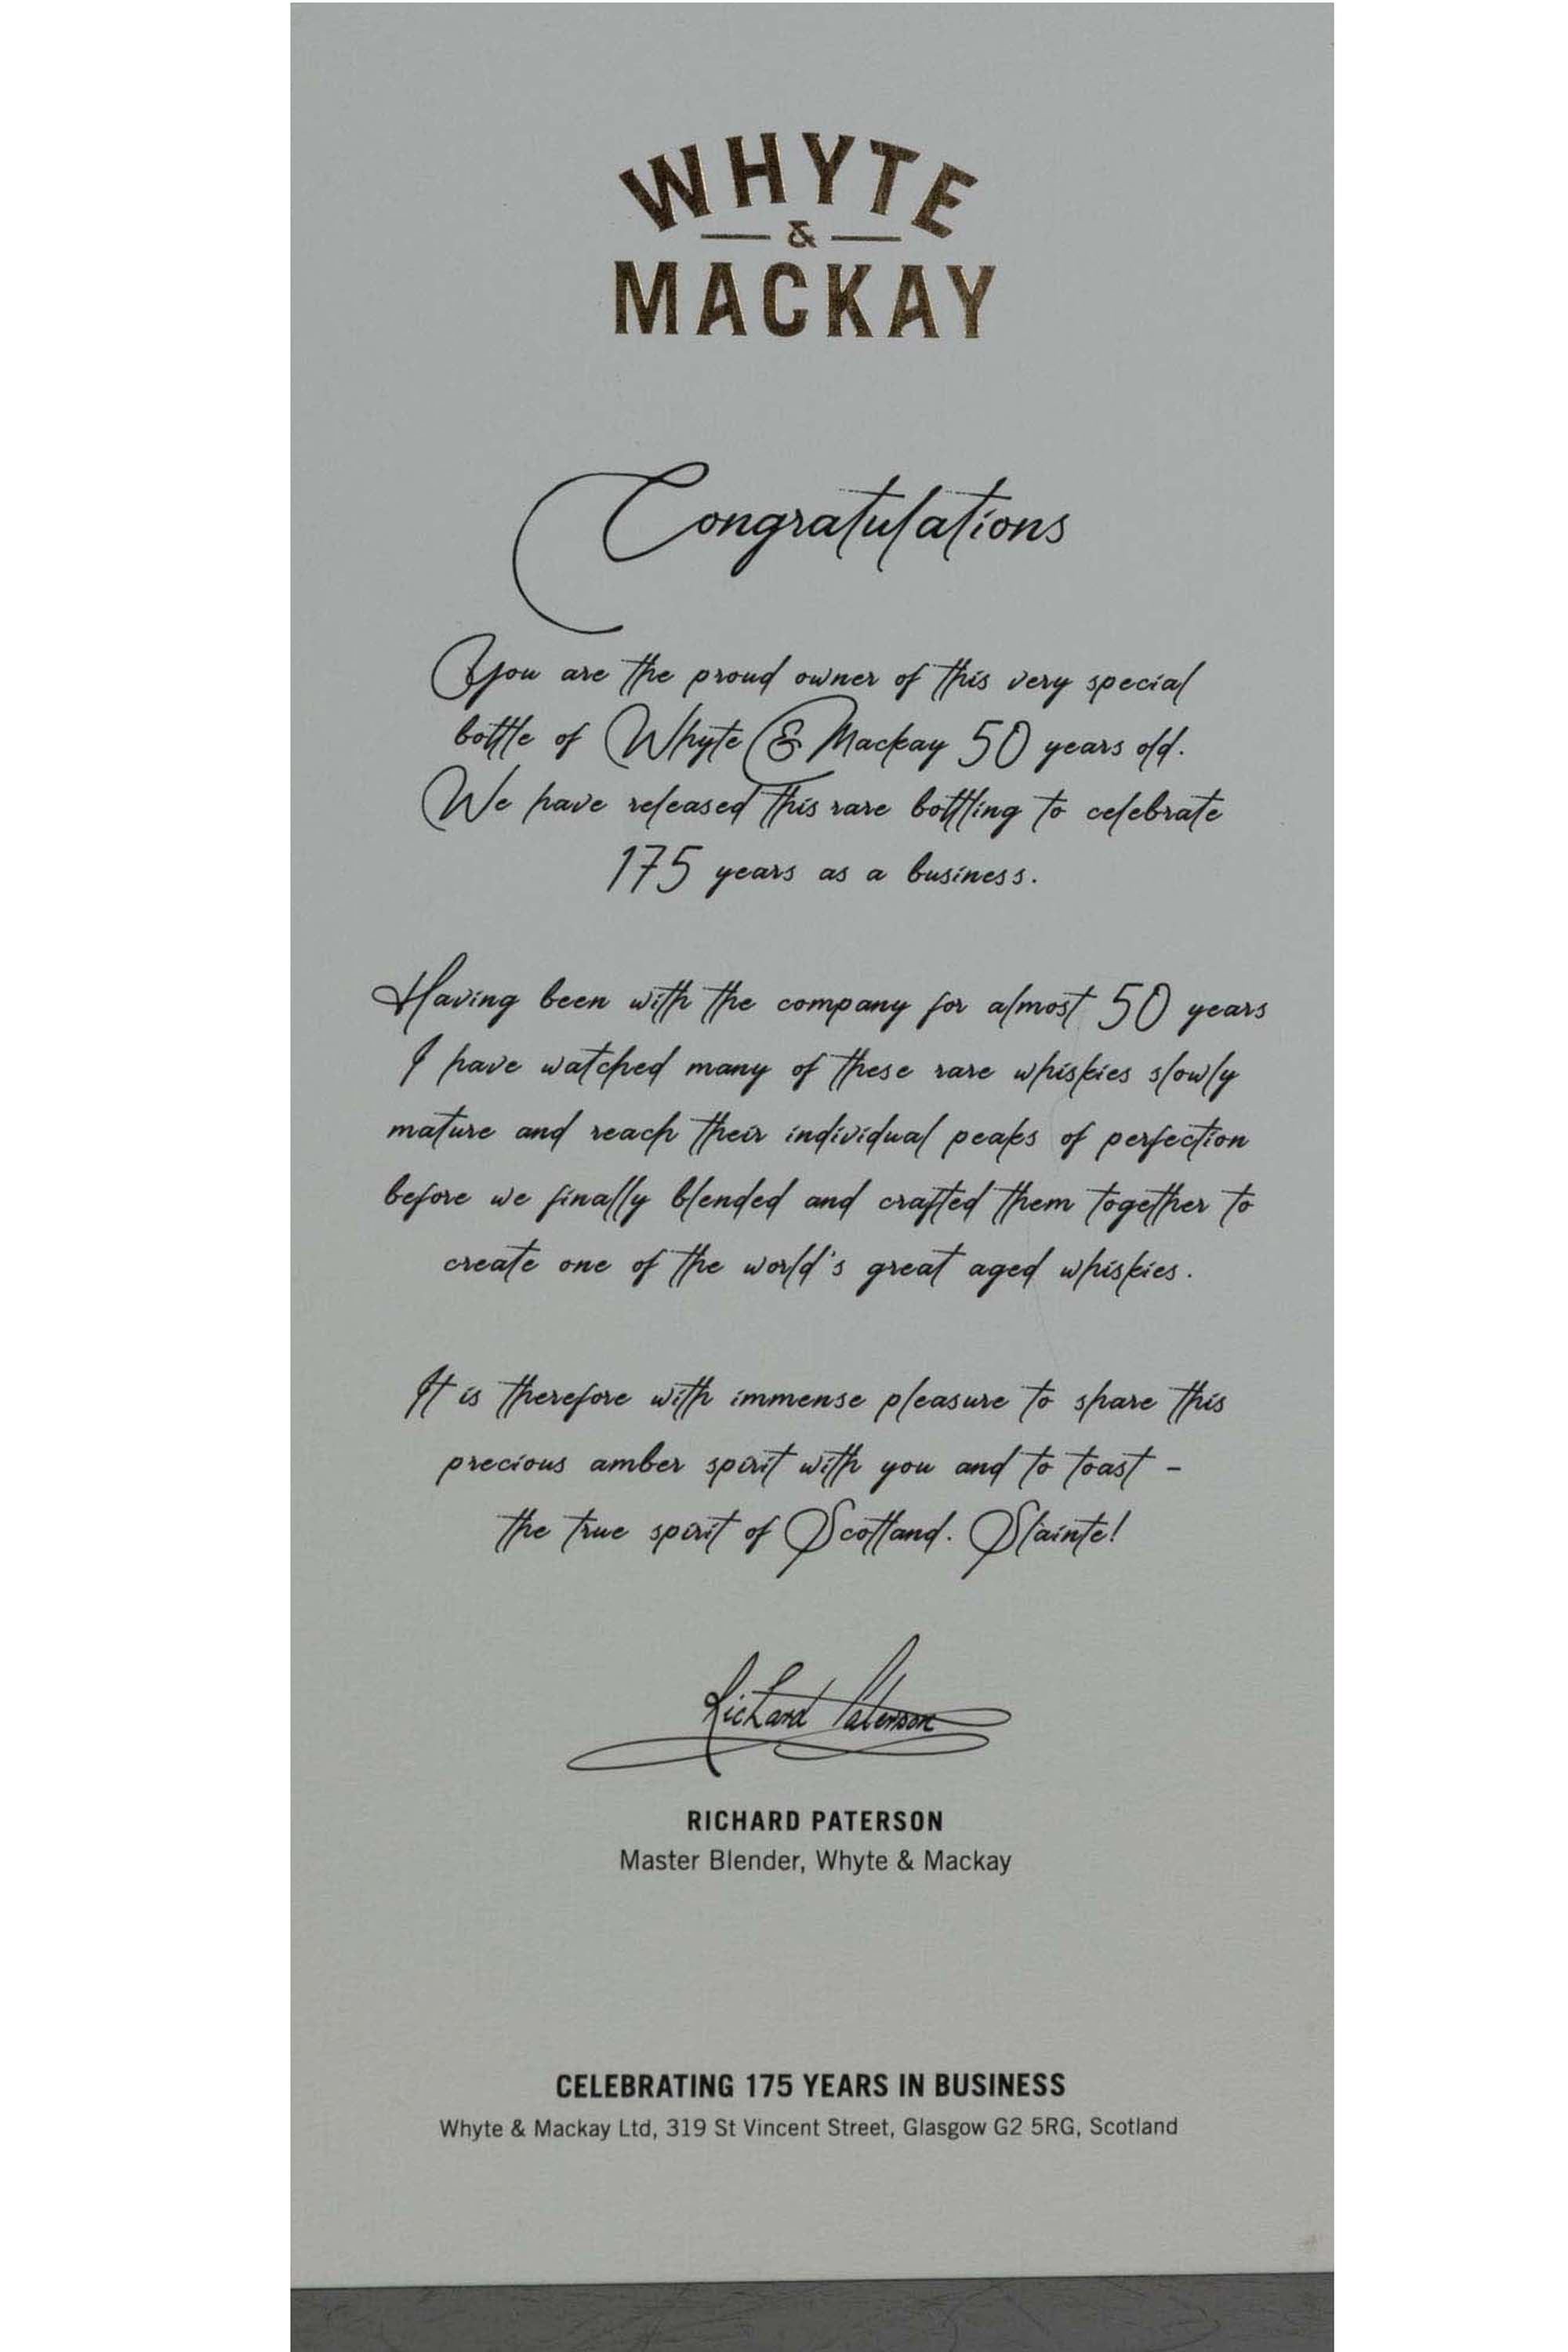 WHYTE
&
MACKAY
Congratulations
You are the proud owner of this very special
bottle of Whyte & Mackay 50 years old.
We have released this rare bottling to celebrate
175 years as a business.
Having been with the company for almost 50 years
I have watched many of these rare whiskies slowly
mature and reach their individual peaks of perfection
before we finally blended and crafted them together to
create one of the world's great aged whiskies.
It is therefore with immense pleasure to share this
precious amber spirit with you and to toast -
the true spirit of Scotland. Slainte!
Richard Paterson
RICHARD PATERSON
Master Blender, Whyte & Mackay
CELEBRATING 175 YEARS IN BUSINESS
Whyte & Mackay Ltd, 319 St Vincent Street, Glasgow G2 5RG, Scotland